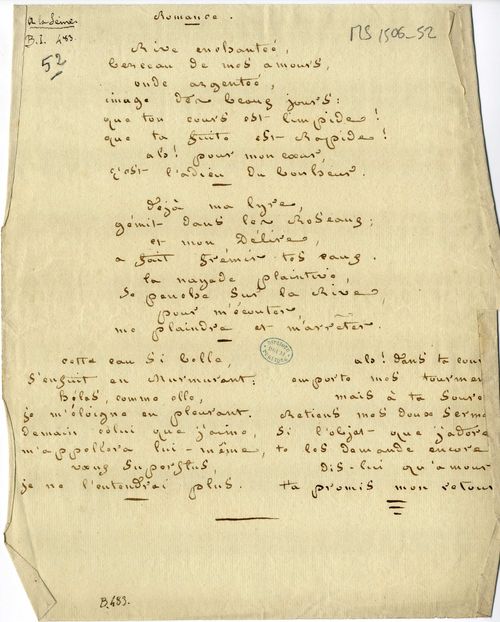 Romance.
A la Seine.
B.I. 483.
52
MS 1506-52
Rive enchantée,
berceau de mes amours,
onde argentée,
image des beaux jours:
que ton cours est limpide!
que ta fuite est Rapide!
ah! pour mon cœur,
c'est l'adieu du bonheur.
Déjà ma lyre,
gémit dans les Roseaux;
et mon Délire,
a fait frémir tes eaux.
la nayade plaintive,
se penche sur la Rive,
pour m'écouter,
me plaindre et m'arrêter.
cette eau si belle,
s'enfuit en Murmurant:
Hélas, comme elle,
je m'éloigne en pleurant.
demain celui que j'aime,
m'appellera lui-même,
vœux superflus,
je ne l'entendrai plus.
ah! dans ta cour
emporte mes tourmen
mais à ta source
Retiens mes doux serme
si l'objet que j'adore
te les demande encore
dis-lui qu'amour
t'a promis mon retour
B.483.